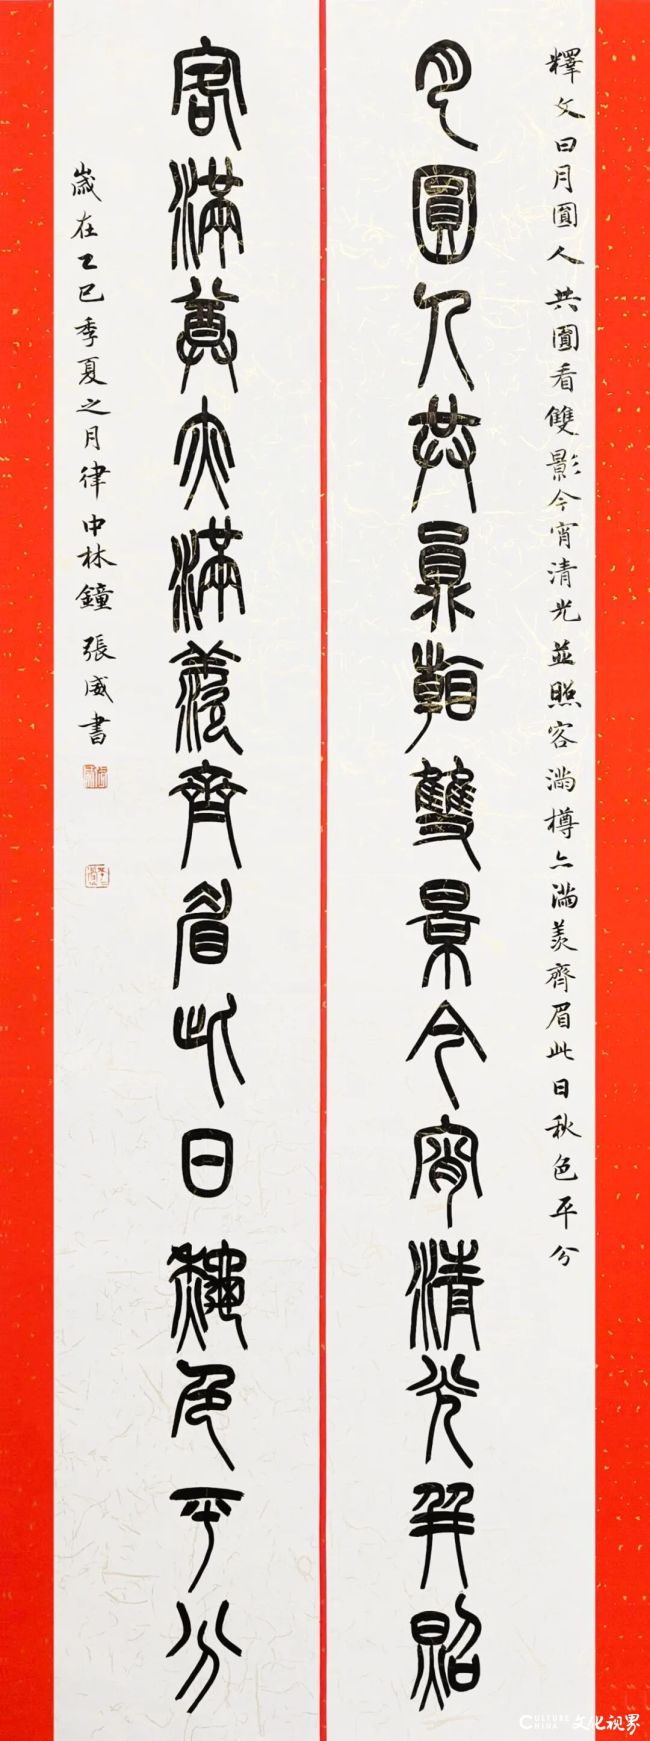 釋文曰月圓人共圓看雙影今宵清光並照客滿樽亦滿羨齊眉此日秋色平分
月圓人共員看雙景今宵清光并照
客滿尊亦滿羨齊眉此日秋色平分
歲在乙巳季夏之月律中林鐘 張威書
CULTURE CHINA 文化视界